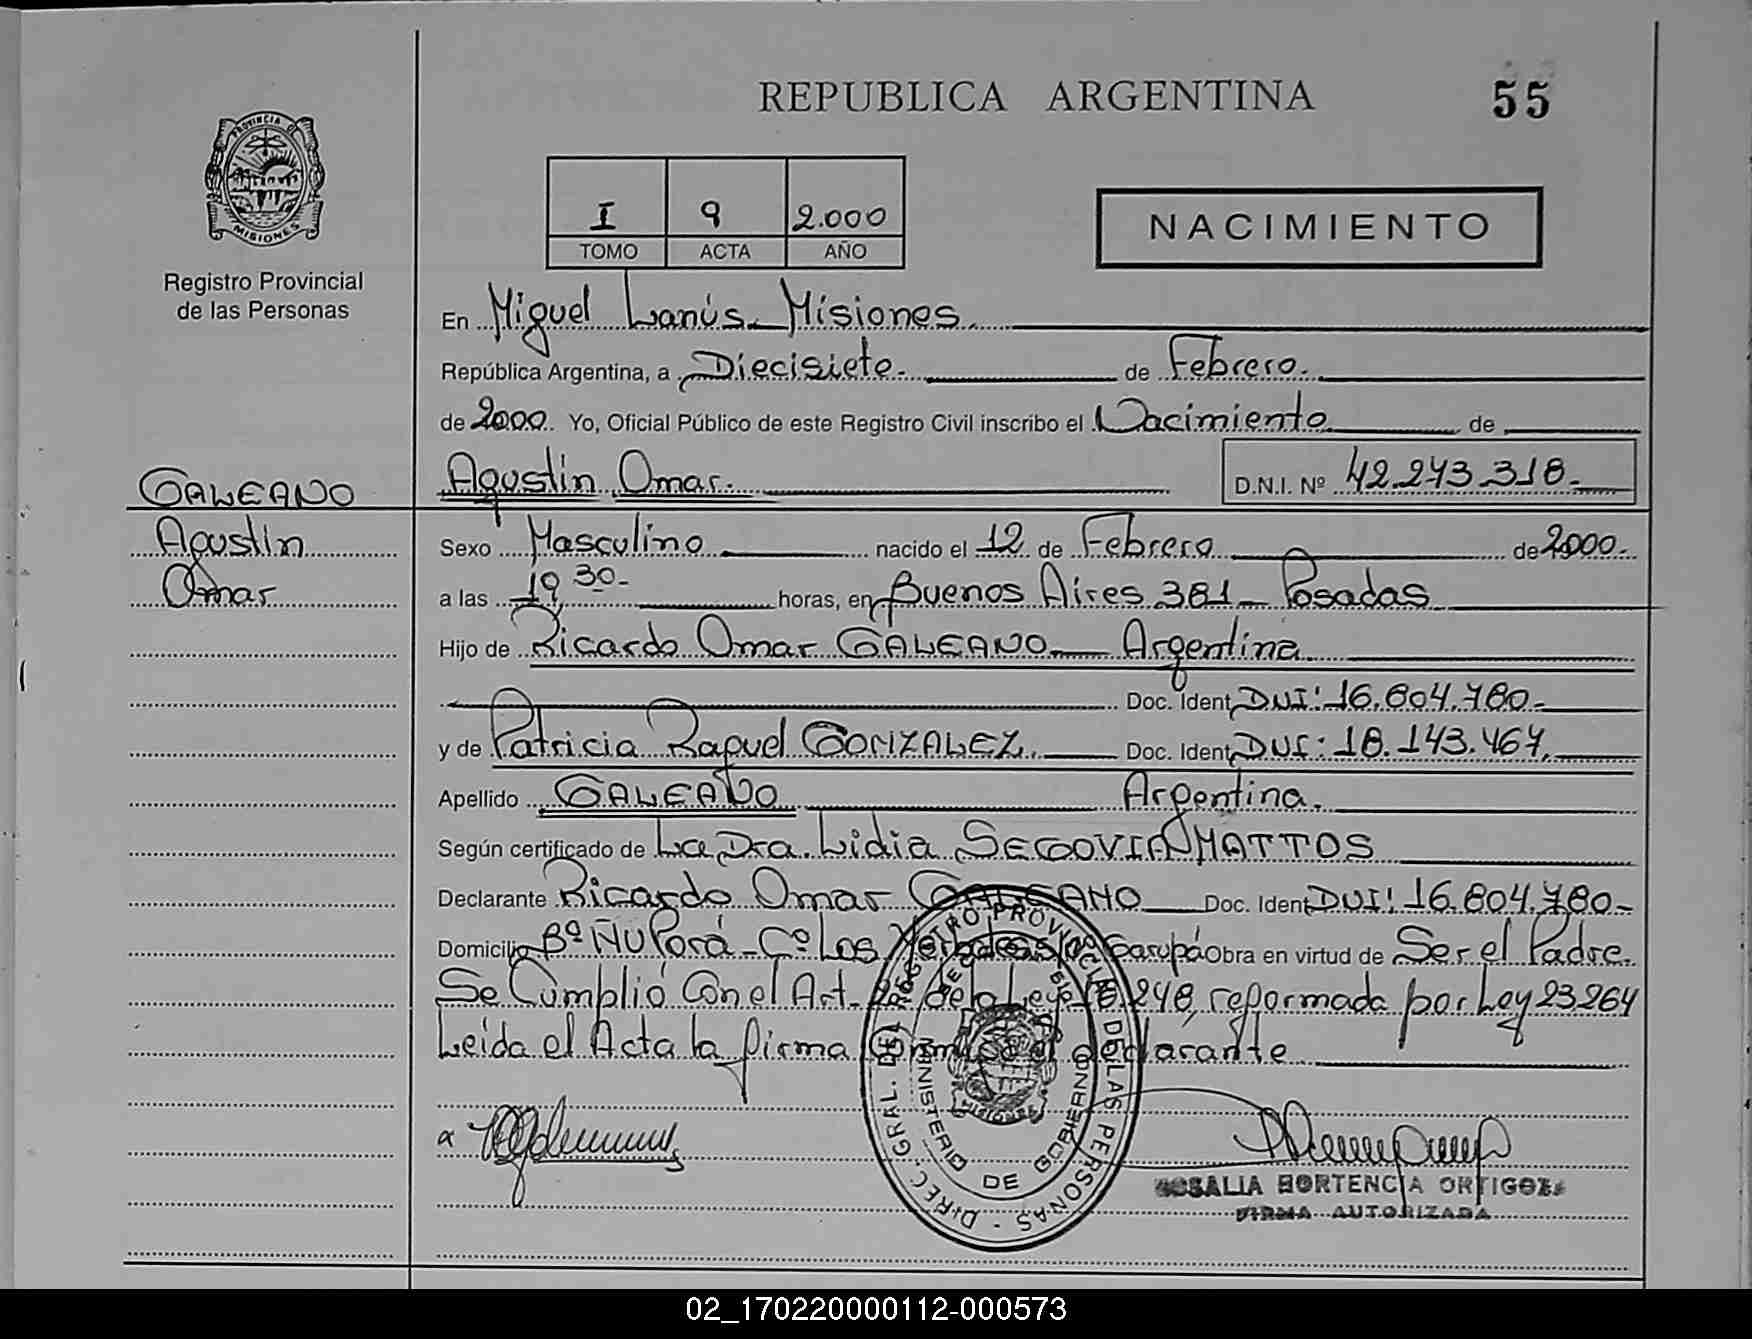 REPUBLICA ARGENTINA
55
PROVINCIA DE
MISIONES
Registro Provincial
de las Personas
I 9 2.000
TOMO ACTA AÑO
NACIMIENTO
En Miguel Lanús - Misiones.
República Argentina, a Diecisiete.- de Febrero.
de 2000. Yo, Oficial Público de este Registro Civil inscribo el Nacimiento de
GALEANO
Agustin Omar.
D.N.I. Nº 42.243.318.-
Agustin
Sexo Masculino nacido el 12 de Febrero de 2000.
Omar
a las 19 30- horas, en Buenos Aires 381 - Posadas
Hijo de Ricardo Omar GALEANO - Argentina.
Doc. Ident. DNI: 16.804.780.-
y de Patricia Raquel GONZALEZ. Doc. Ident. DNI: 18.143.467.
Apellido GALEANO Argentina.
Según certificado de La Dra. Lidia SEGOVIA MATTOS
Declarante Ricardo Omar GALEANO Doc. Ident. DNI: 16.804.780-
Domicilio Bº Ñu Porá - Cº Los Garupá Obra en virtud de Ser el Padre.
Se Cumplió Con el Art. de la Ley 18.248, reformada por Ley 23264
Leida el Acta la firma Conmigo el declarante
DIREC. GRAL. DEL REGISTRO PROVINCIAL DE LAS PERSONAS
MINISTERIO DE GOBIERNO
MISIONES
ROSALIA HORTENCIA ORTIGOZA
FIRMA AUTORIZADA
02_170220000112-000573